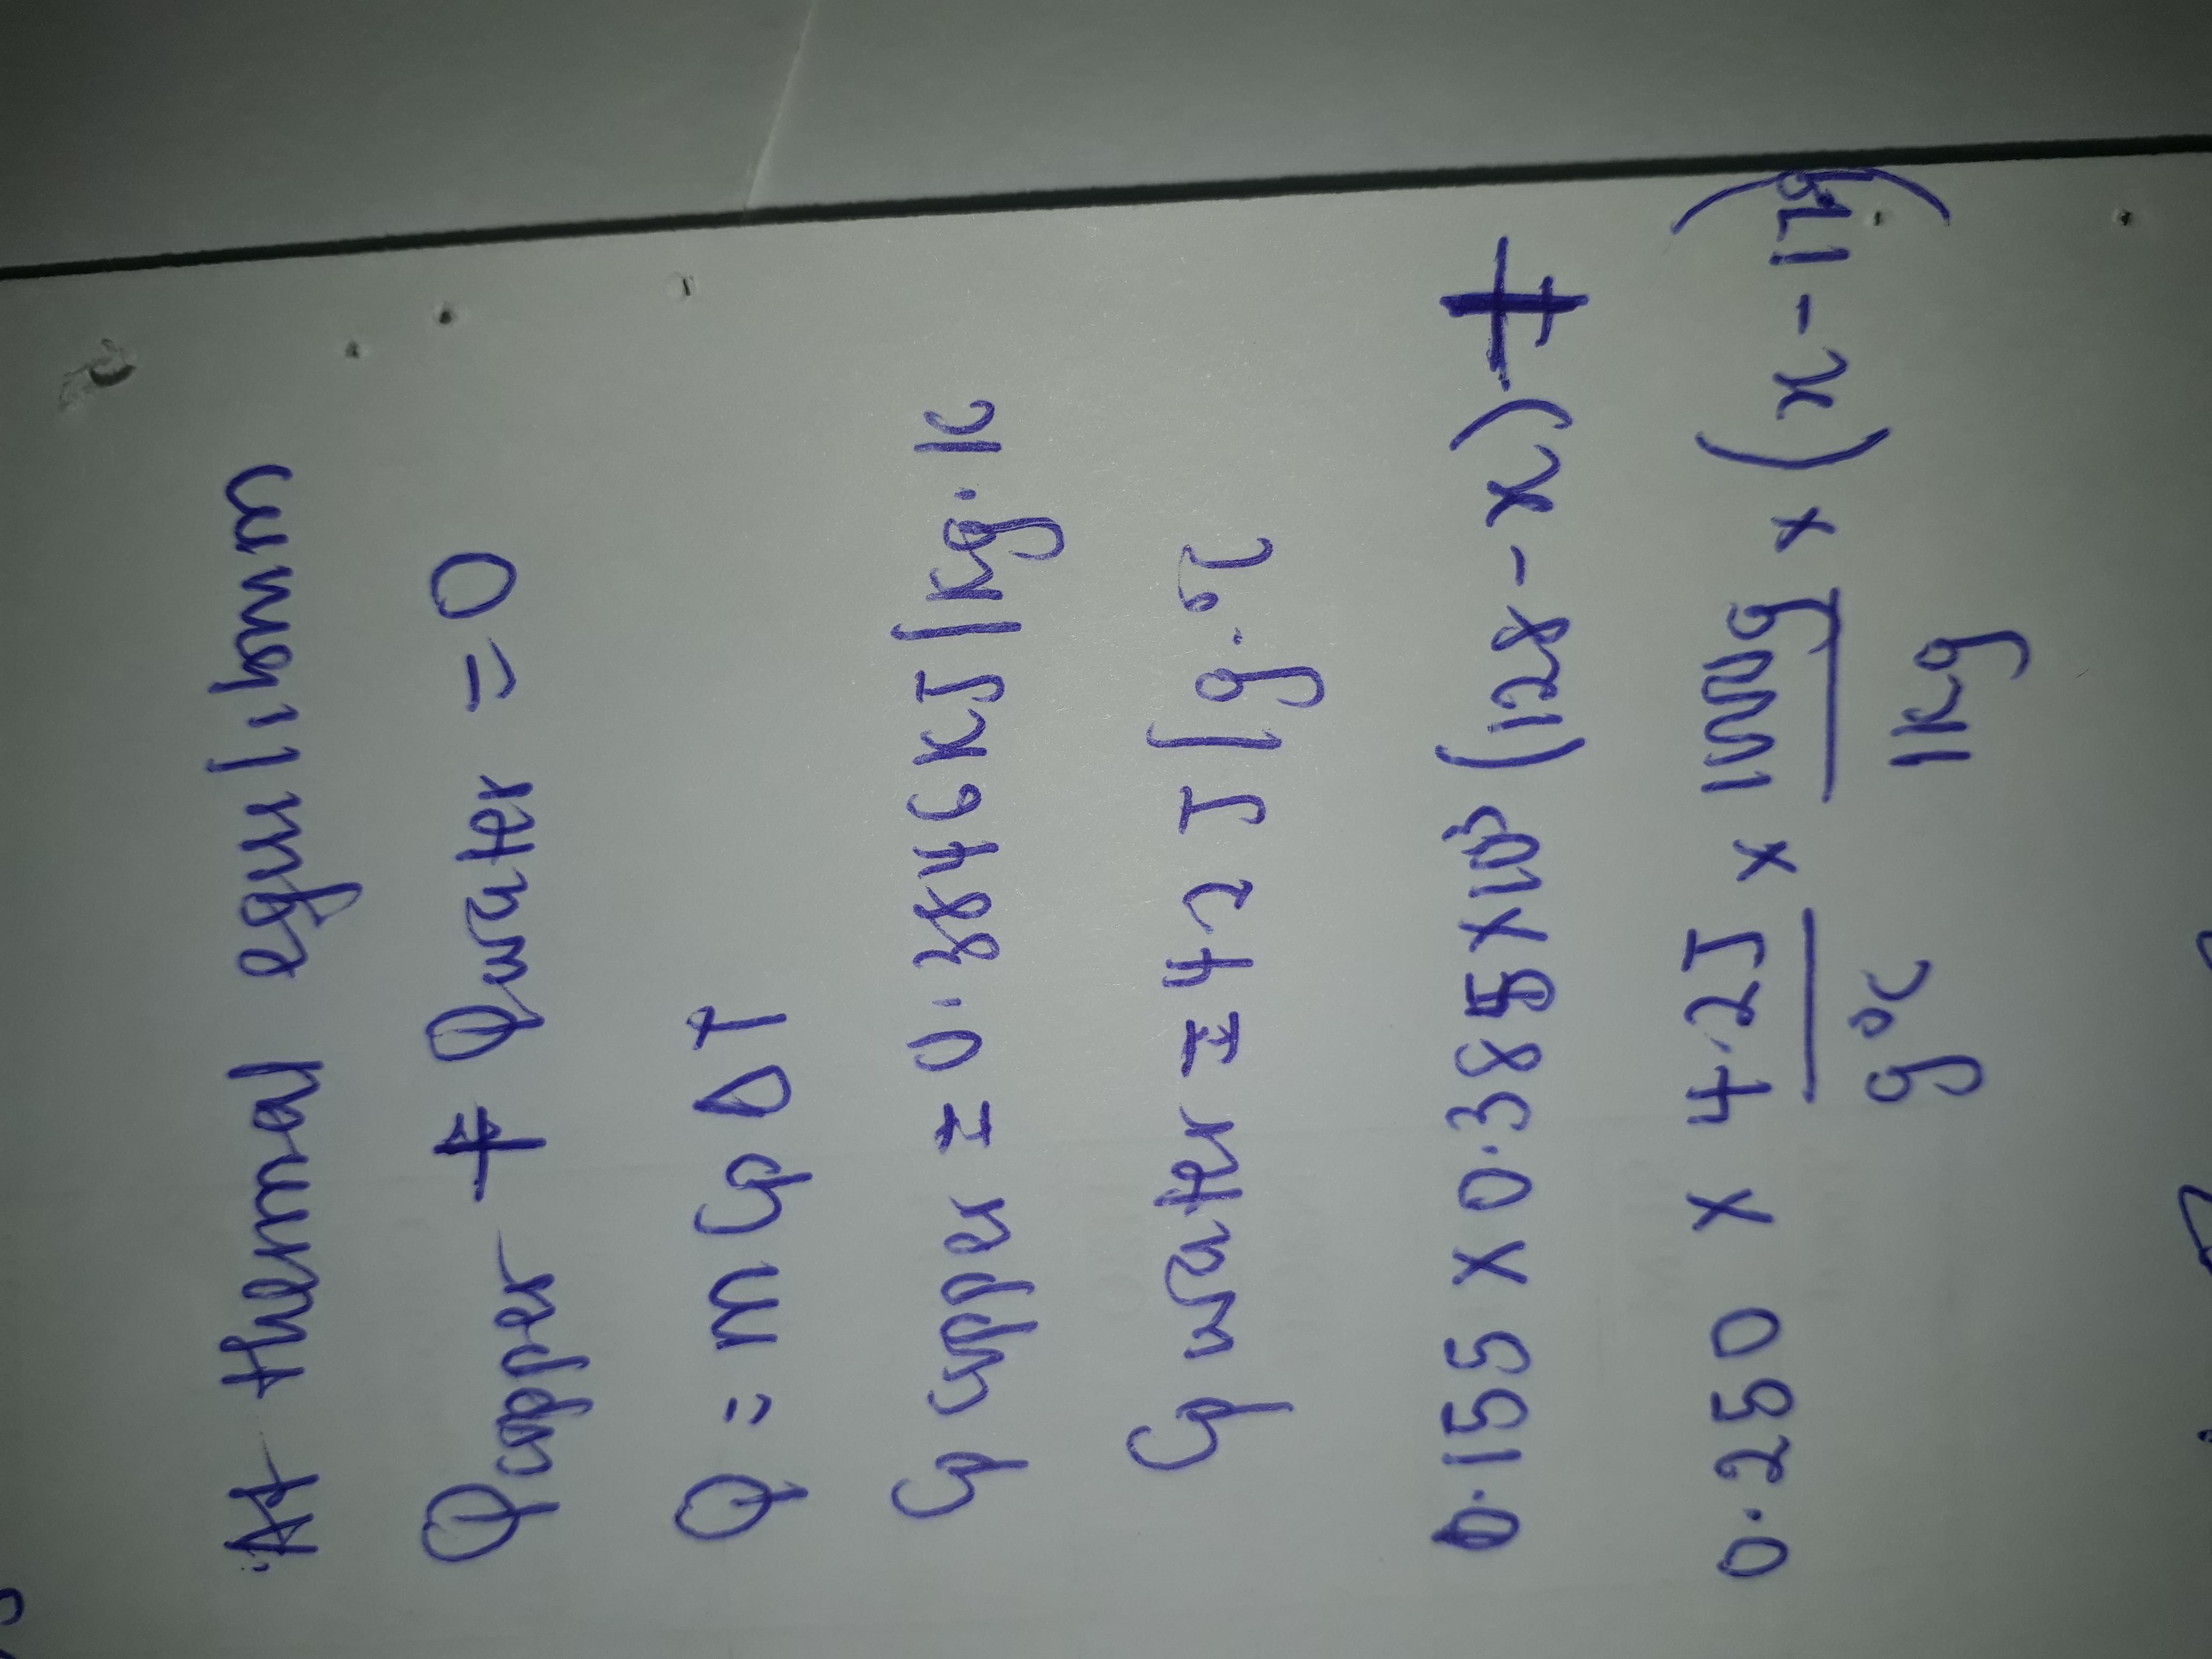 At thermal equilibrium
Qcopper + Qwater = 0
Q = m Cp ΔT
Cp copper = 0.3846 KJ/Kg.K
Cp water = 4.2 J/g.°C
0.155 x 0.385 x 10³ (128 - x) +
0.250 x 4.2J/g°C x 1000g/1kg x (x - 17.8)